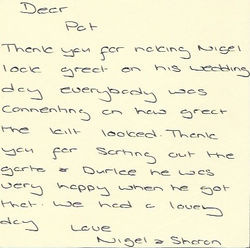 Dear
Pat
Thank you for making Nigel
look great on his wedding
day everybody was
commenting on how great
the kilt looked. Thank
you for sorting out the
garte &  he was
very happy when he got
that. We had a lovey
day Love
Nigel & Sharon